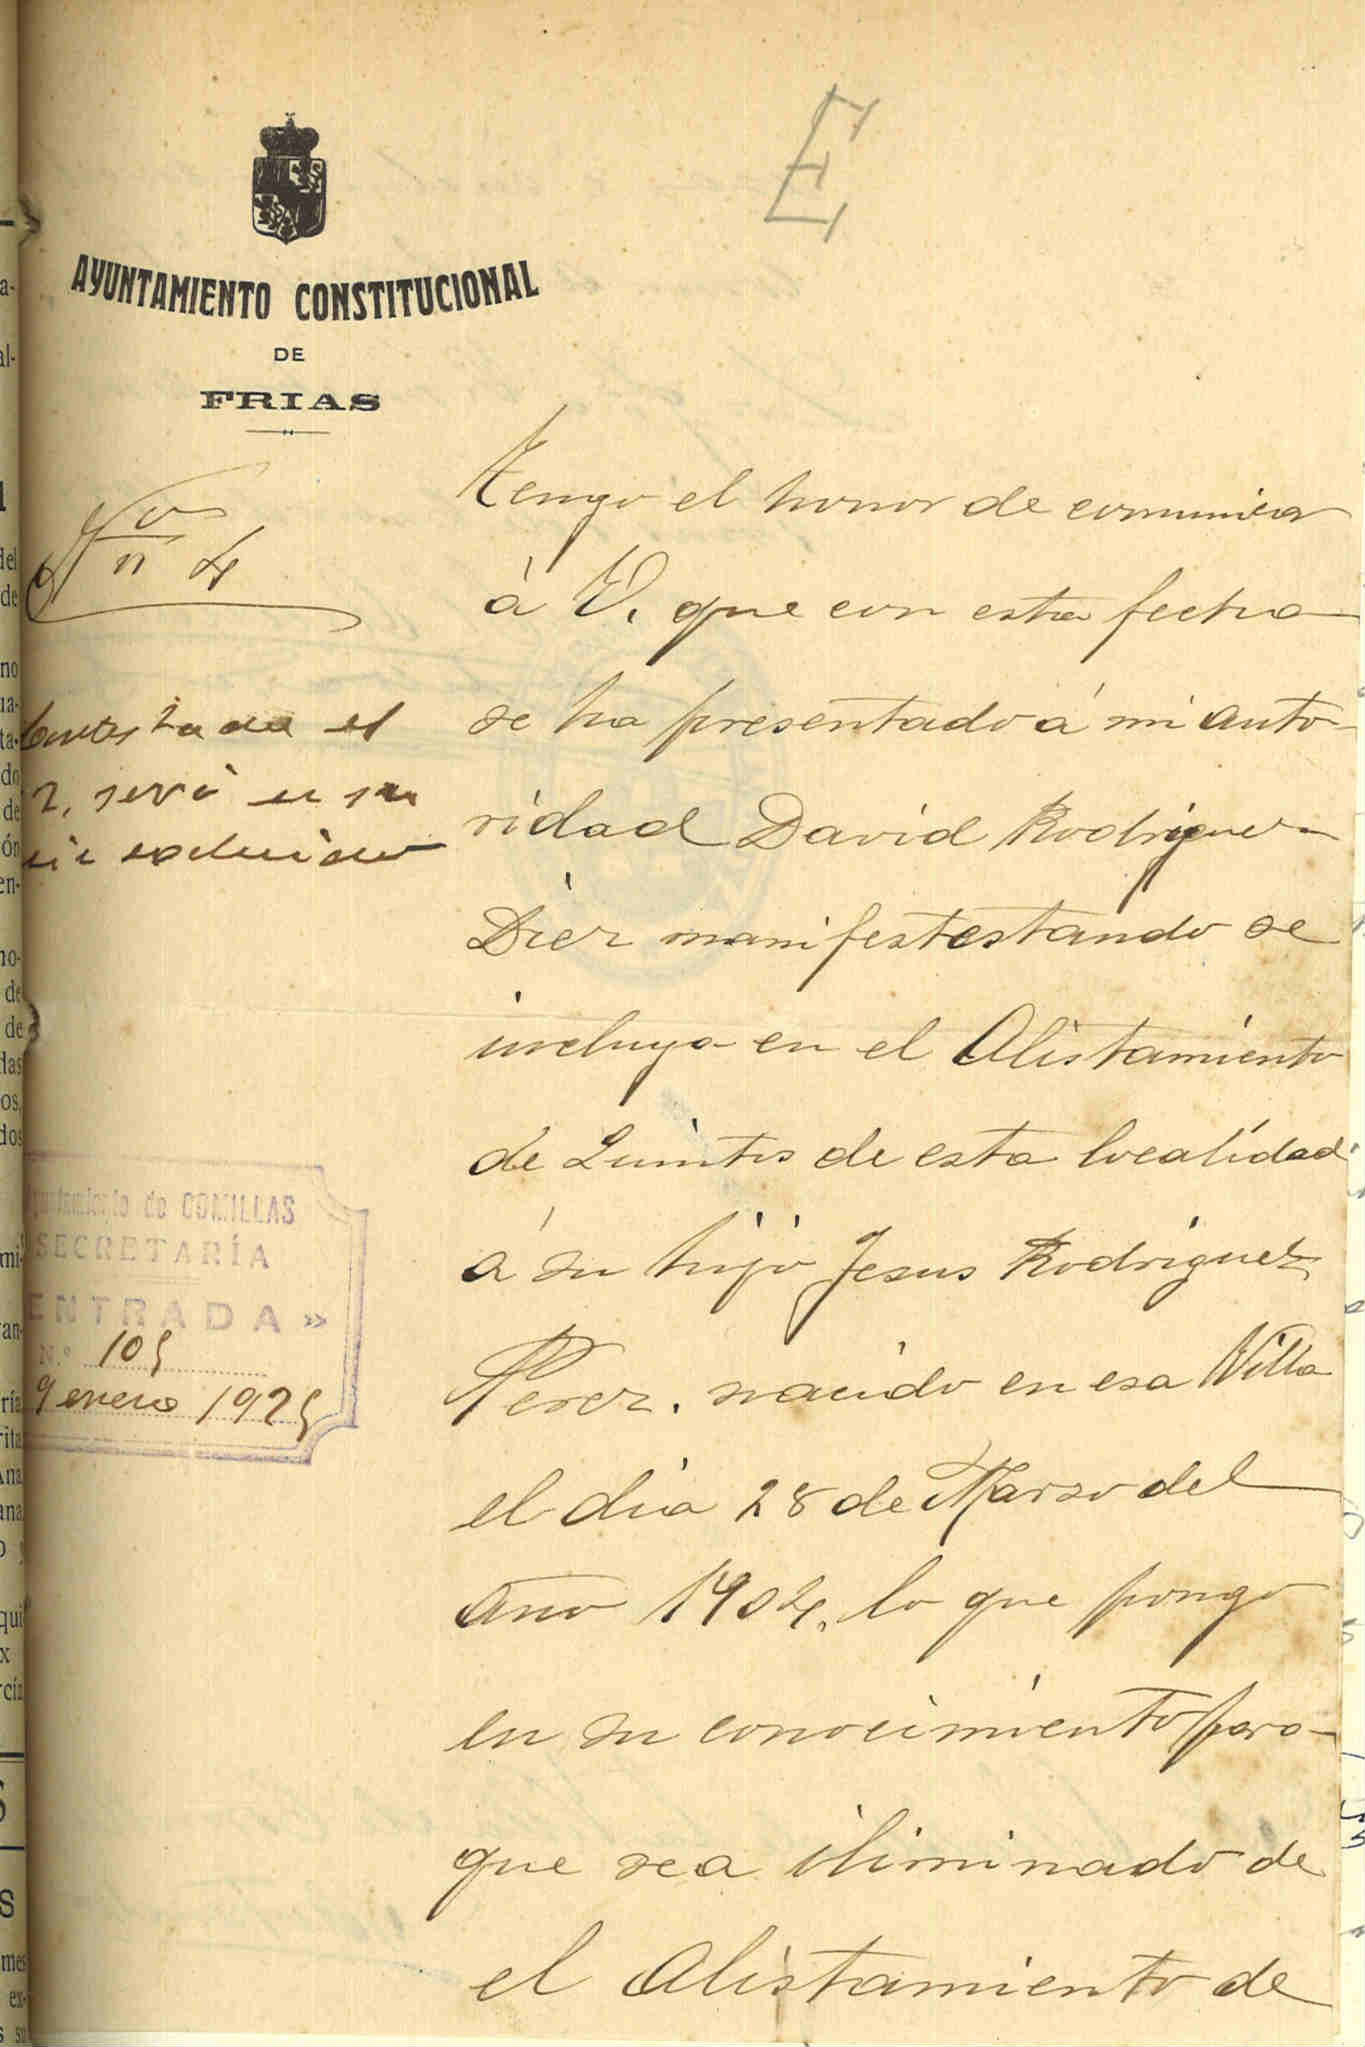 E
AYUNTAMIENTO CONSTITUCIONAL
DE
FRIAS
Nº 4
Tengo el honor de comunicar
á V. que con esta fecha
se ha presentado á mi auto-
ridad David Rodriguez
Diez manifestestando se
incluya en el Alistamiento
de Quintos de esta localidad
á su hijo Jesus Rodriguez
Perez. nacido en esa Villa
el dia 28 de Marzo del
año 1904, lo que pongo
en su conocimiento para
que sea iliminado de
el Alistamiento de
Contestada el
2, será en su
excluido
Ayuntamiento de COMILLAS
SECRETARÍA
ENTRADA »
N.º 105
9 enero 1925